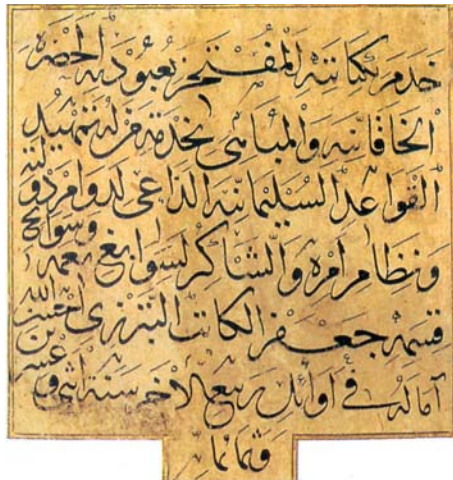 خدم بكتابته المفتخر بعبودية الحضرة
الخاقانية والمباهي بخدمة من له تمهيد
القواعد السليمانية الداعي لدوام دولته
ونظام امره والشاكر لسوابغ نعمه
قسمه جعفر الكاتب التبريزي احسن الله
آماله في اوائل ربيع الآخر سنة اثنى وعشرين
وثمانمائة